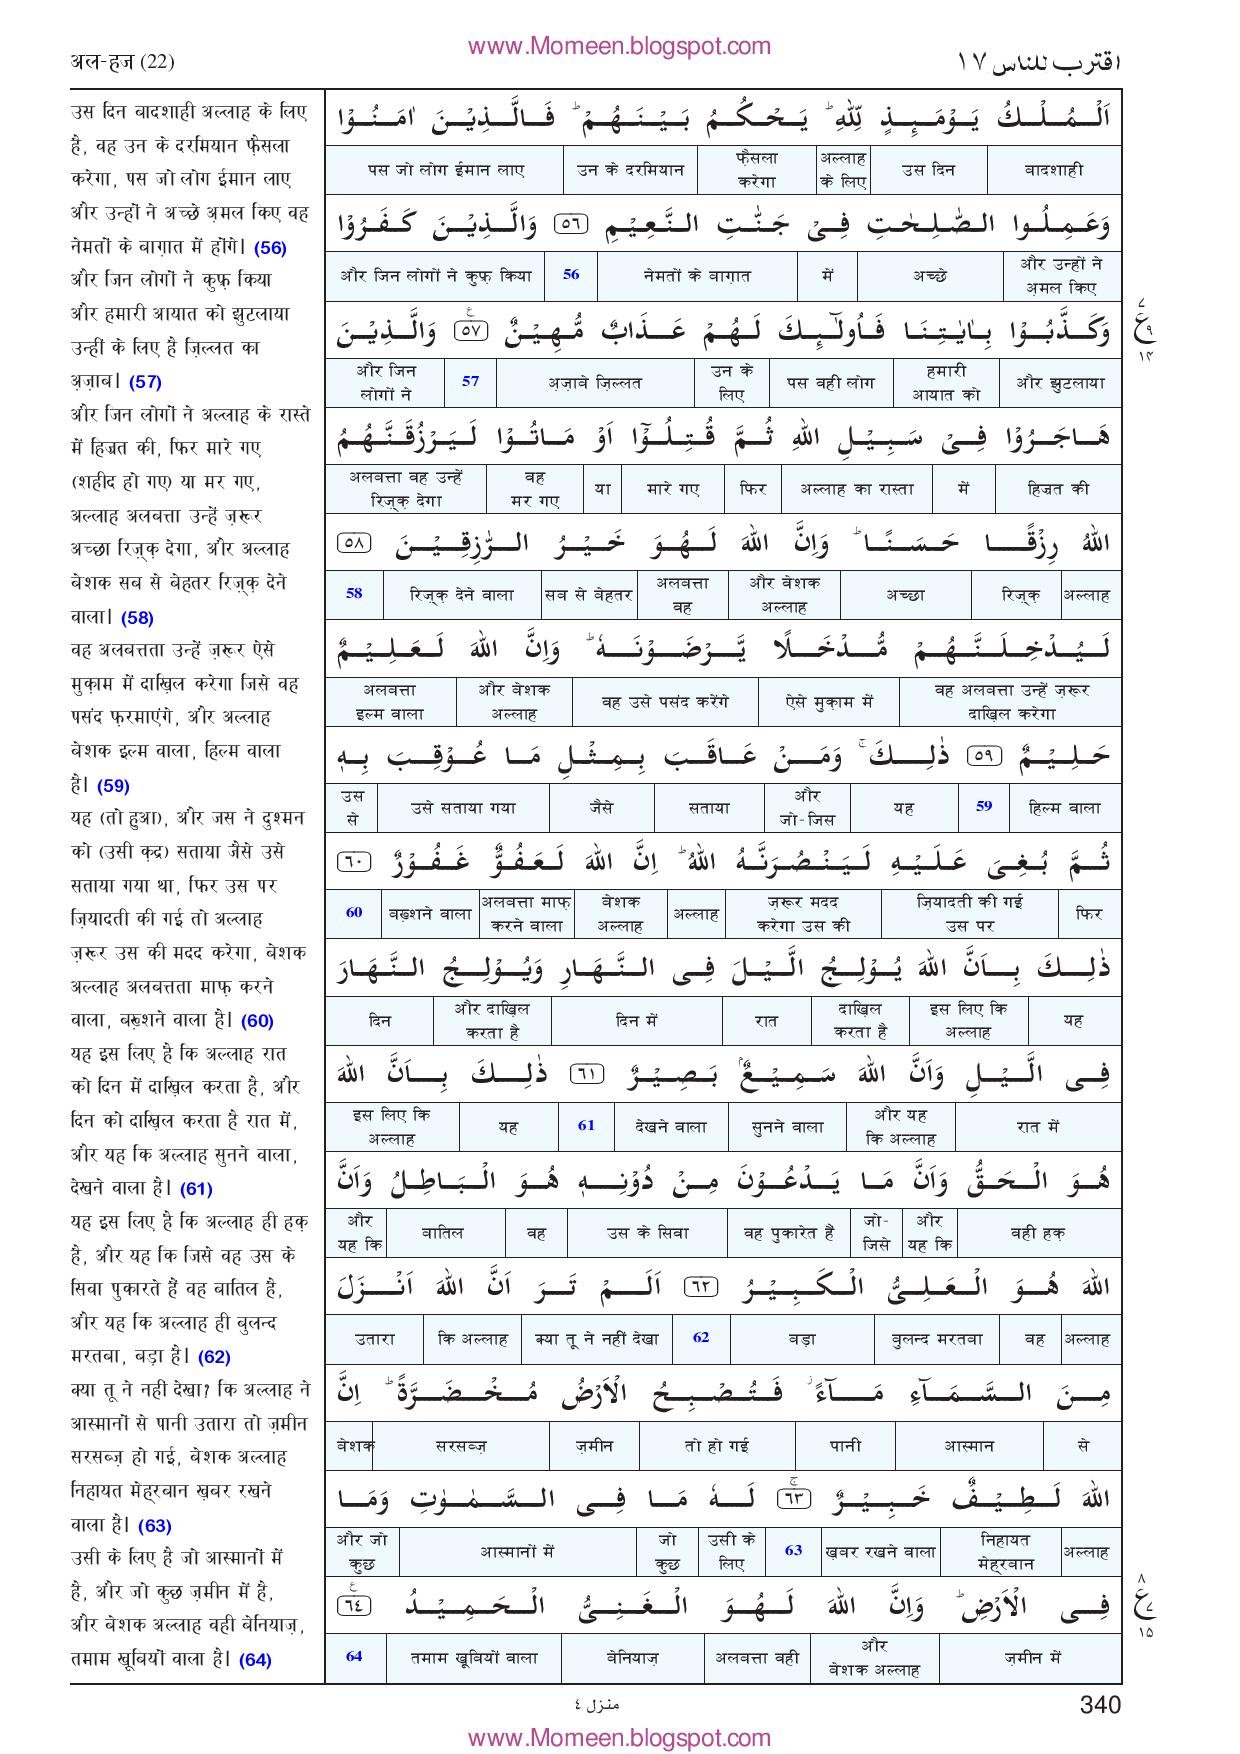 www.Momeen.blogspot.com
अल-हज (22)
اقترب للناس ١٧
उस दिन बादशाही अल्लाह के लिए
है, वह उन के दरमियान फ़ैसला
करेगा, पस जो लोग ईमान लाए
और उन्हों ने अच्छे अ़मल किए वह
नेमतों के बाग़ात में होंगे। (56)
और जिन लोगों ने कुफ़्र किया
और हमारी आयात को झुटलाया
उन्हीं के लिए है ज़िल्लत का
अ़ज़ाब। (57)
और जिन लोगों ने अल्लाह के रास्ते
में हिज्रत की, फिर मारे गए
(शहीद हो गए) या मर गए,
अल्लाह अलबत्ता उन्हें ज़रूर
अच्छा रिज़्क़ देगा, और अल्लाह
बेशक सब से बेहतर रिज़्क़ देने
वाला। (58)
वह अलबत्तता उन्हें ज़रूर ऐसे
मुक़ाम में दाख़िल करेगा जिसे वह
पसंद फ़रमाएंगे, और अल्लाह
बेशक इल्म वाला, हिल्म वाला
है। (59)
यह (तो हुआ), और जस ने दुश्मन
को (उसी क़द्र) सताया जैसे उसे
सताया गया था, फिर उस पर
ज़ियादती की गई तो अल्लाह
ज़रूर उस की मदद करेगा, बेशक
अल्लाह अलबत्तता माफ़ करने
वाला, बख़्शने वाला है। (60)
यह इस लिए है कि अल्लाह रात
को दिन में दाख़िल करता है, और
दिन को दाख़िल करता है रात में,
और यह कि अल्लाह सुनने वाला,
देखने वाला है। (61)
यह इस लिए है कि अल्लाह ही हक़
है, और यह कि जिसे वह उस के
सिवा पुकारते हैं वह बातिल है,
और यह कि अल्लाह ही बुलन्द
मरतबा, बड़ा है। (62)
क्या तू ने नही देखा? कि अल्लाह ने
आस्मानों से पानी उतारा तो ज़मीन
सरसब्ज़ हो गई, बेशक अल्लाह
निहायत मेह्रबान ख़बर रखने
वाला है। (63)
उसी के लिए है जो आस्मानों में
है, और जो कुछ ज़मीन में है,
और बेशक अल्लाह वही बेनियाज़,
तमाम ख़ूबियों वाला है। (64)
اَلْمُلْكُ يَوْمَىِٕذٍ لِّلّٰهِ ؕ يَحْكُمُ بَيْنَهُمْ ؕ فَالَّذِيْنَ اٰمَنُوْا
बादशाही | उस दिन | अल्लाह के लिए | फ़ैसला करेगा | उन के दरमियान | पस जो लोग ईमान लाए
وَعَمِلُوا الصّٰلِحٰتِ فِىْ جَنّٰتِ النَّعِيْمِ ٥٦ وَالَّذِيْنَ كَفَرُوْا
और उन्हों ने अ़मल किए | अच्छे | में | नेमतों के बाग़ात | 56 | और जिन लोगों ने कुफ़्र किया
وَكَذَّبُوْا بِاٰيٰتِنَا فَاُولٰٓىِٕكَ لَهُمْ عَذَابٌ مُّهِيْنٌ ٥٧ وَالَّذِيْنَ
और झुटलाया | हमारी आयात को | पस वही लोग | उन के लिए | अ़ज़ाबे ज़िल्लत | 57 | और जिन लोगों ने
هَاجَرُوْا فِىْ سَبِيْلِ اللهِ ثُمَّ قُتِلُوْٓا اَوْ مَاتُوْا لَيَرْزُقَنَّهُمُ
हिज्रत की | में | अल्लाह का रास्ता | फिर | मारे गए | या | वह मर गए | अलबत्ता वह उन्हें रिज़्क़ देगा
اللهُ رِزْقًا حَسَنًا ؕ وَاِنَّ اللهَ لَهُوَ خَيْرُ الرّٰزِقِيْنَ ٥٨
अल्लाह | रिज़्क़ | अच्छा | और बेशक अल्लाह | अलबत्ता वह | सब से बेहतर | रिज़्क़ देने वाला | 58
لَيُدْخِلَنَّهُمْ مُّدْخَلًا يَّرْضَوْنَهٗ ؕ وَاِنَّ اللهَ لَعَلِيْمٌ
वह अलबत्ता उन्हें ज़रूर दाख़िल करेगा | ऐसे मुक़ाम में | वह उसे पसंद करेंगे | और बेशक अल्लाह | अलबत्ता इल्म वाला
حَلِيْمٌ ٥٩ ذٰلِكَ ۚ وَمَنْ عَاقَبَ بِمِثْلِ مَا عُوْقِبَ بِهٖ
हिल्म वाला | 59 | यह | और जो-जिस | सताया | जैसे | उसे सताया गया | उस से
ثُمَّ بُغِىَ عَلَيْهِ لَيَنْصُرَنَّهُ اللهُ ؕ اِنَّ اللهَ لَعَفُوٌّ غَفُوْرٌ ٦٠
फिर | ज़ियादती की गई उस पर | ज़रूर मदद करेगा उस की | अल्लाह | बेशक अल्लाह | अलबत्ता माफ़ करने वाला | बख़्शने वाला | 60
ذٰلِكَ بِاَنَّ اللهَ يُوْلِجُ الَّيْلَ فِى النَّهَارِ وَيُوْلِجُ النَّهَارَ
यह | इस लिए कि अल्लाह | दाख़िल करता है | रात | दिन में | और दाख़िल करता है | दिन
فِى الَّيْلِ وَاَنَّ اللهَ سَمِيْعٌۢ بَصِيْرٌ ٦١ ذٰلِكَ بِاَنَّ اللهَ
रात में | और यह कि अल्लाह | सुनने वाला | देखने वाला | 61 | यह | इस लिए कि अल्लाह
هُوَ الْحَقُّ وَاَنَّ مَا يَدْعُوْنَ مِنْ دُوْنِهٖ هُوَ الْبَاطِلُ وَاَنَّ
वही हक़ | और यह कि | जो-जिसे | वह पुकारेत हैं | उस के सिवा | वह | बातिल | और यह कि
اللهَ هُوَ الْعَلِىُّ الْكَبِيْرُ ٦٢ اَلَمْ تَرَ اَنَّ اللهَ اَنْزَلَ
अल्लाह | वह | बुलन्द मरतबा | बड़ा | 62 | क्या तू ने नहीं देखा | कि अल्लाह | उतारा
مِنَ السَّمَآءِ مَآءً ز فَتُصْبِحُ الْاَرْضُ مُخْضَرَّةً ؕ اِنَّ
से | आस्मान | पानी | तो हो गई | ज़मीन | सरसब्ज़ | बेशक
اللهَ لَطِيْفٌ خَبِيْرٌ ٦٣ ۚ لَهٗ مَا فِى السَّمٰوٰتِ وَمَا
अल्लाह | निहायत मेह्रबान | ख़बर रखने वाला | 63 | उसी के लिए | जो कुछ | आस्मानों में | और जो कुछ
فِى الْاَرْضِ ؕ وَاِنَّ اللهَ لَهُوَ الْغَنِىُّ الْحَمِيْدُ ٦٤
ज़मीन में | और बेशक अल्लाह | अलबत्ता वही | बेनियाज़ | तमाम ख़ूबियों वाला | 64
٧ ع ٩ ١٤
٨ ع ٧ ١٥
منزل ٤
340
www.Momeen.blogspot.com